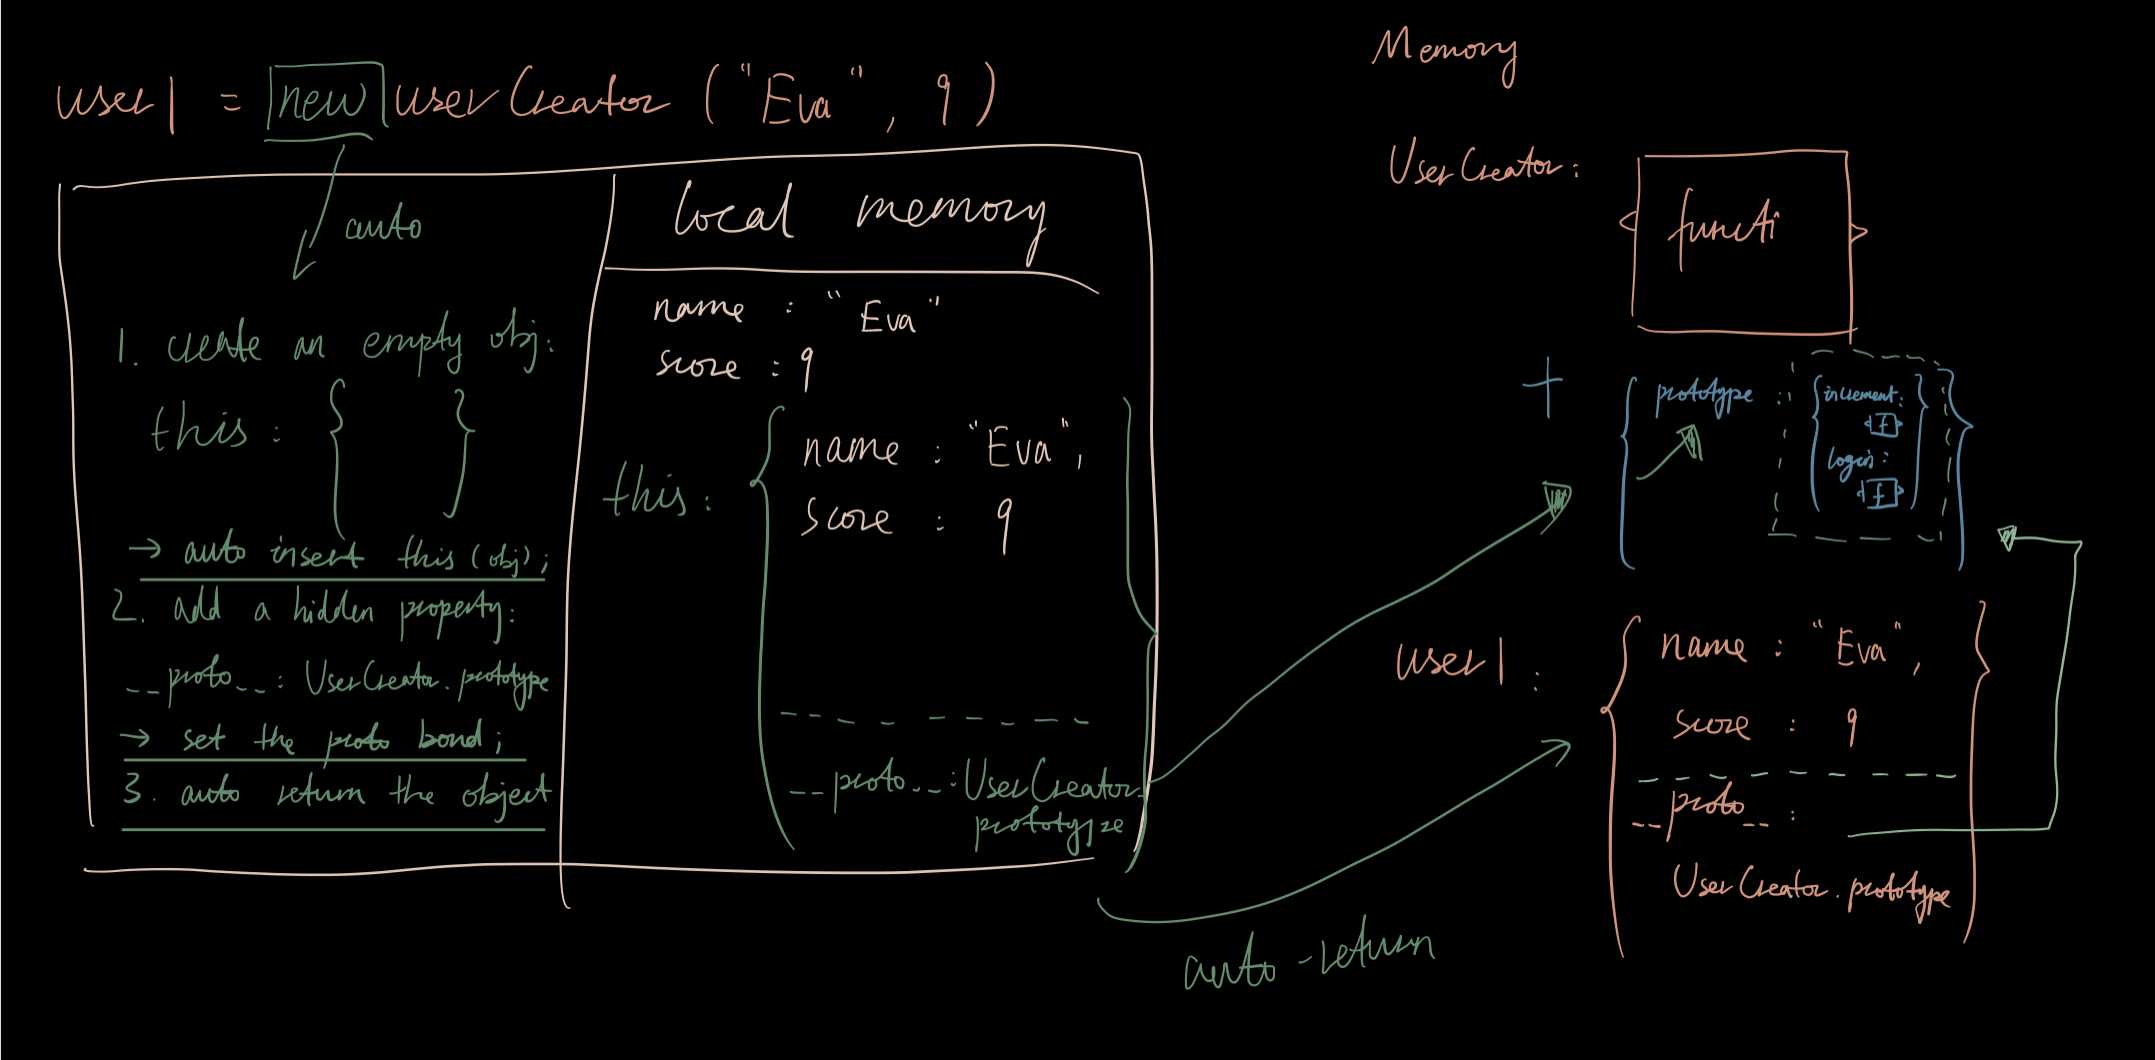 user1 = new userCreator ("Eva", 9)
auto
1. create an empty obj:
this : { }
→ auto insert this (obj);
2. add a hidden property:
__proto__: UserCreator.prototype
→ set the proto bond;
3. auto return the object
local memory
name : "Eva"
score : 9
this : {
name : "Eva",
score : 9
__proto__: UserCreator
prototype
}
auto-return
Memory
UserCreator:
functi
+
{ prototype : { increment:
f
login:
f
} }
user1 : {
name : "Eva",
score : 9
__proto__ :
UserCreator.prototype
}